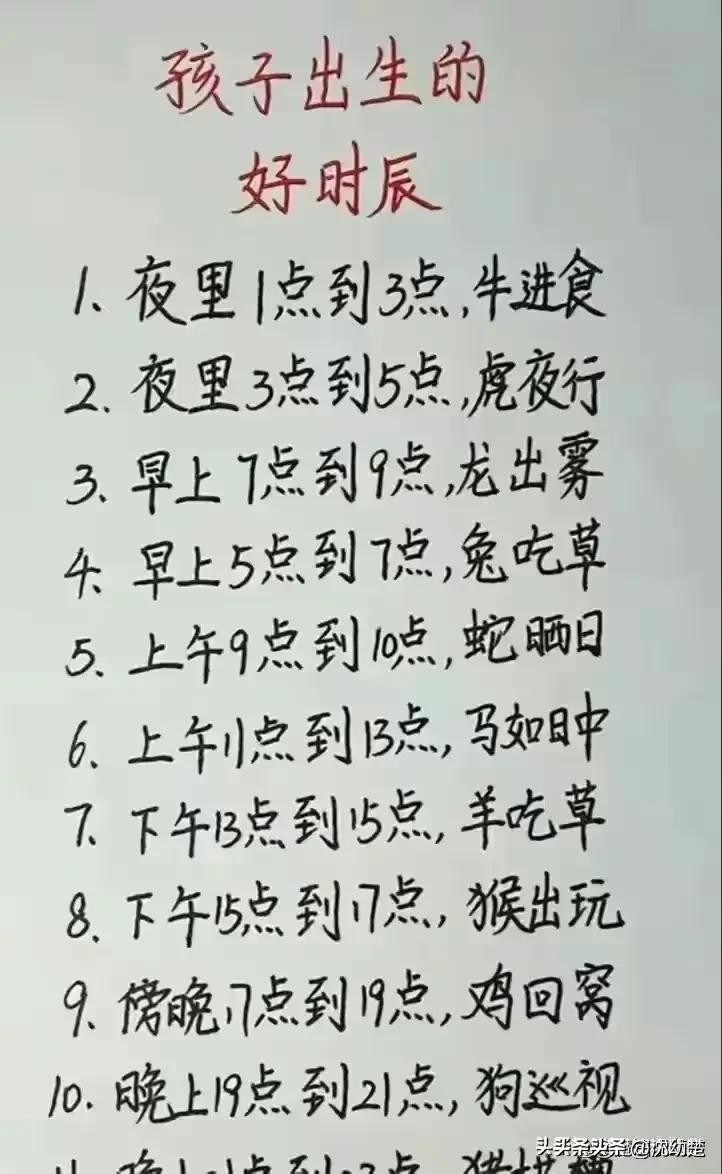 孩子出生的
好时辰
1、夜里1点到3点,牛进食
2、夜里3点到5点,虎夜行
3、早上7点到9点,龙出雾
4、早上5点到7点,兔吃草
5、上午9点到10点,蛇晒日
6、上午11点到13点,马如日中
7、下午13点到15点,羊吃草
8、下午15点到17点,猴出玩
9、傍晚17点到19点,鸡回窝
10、晚上19点到21点,狗巡视